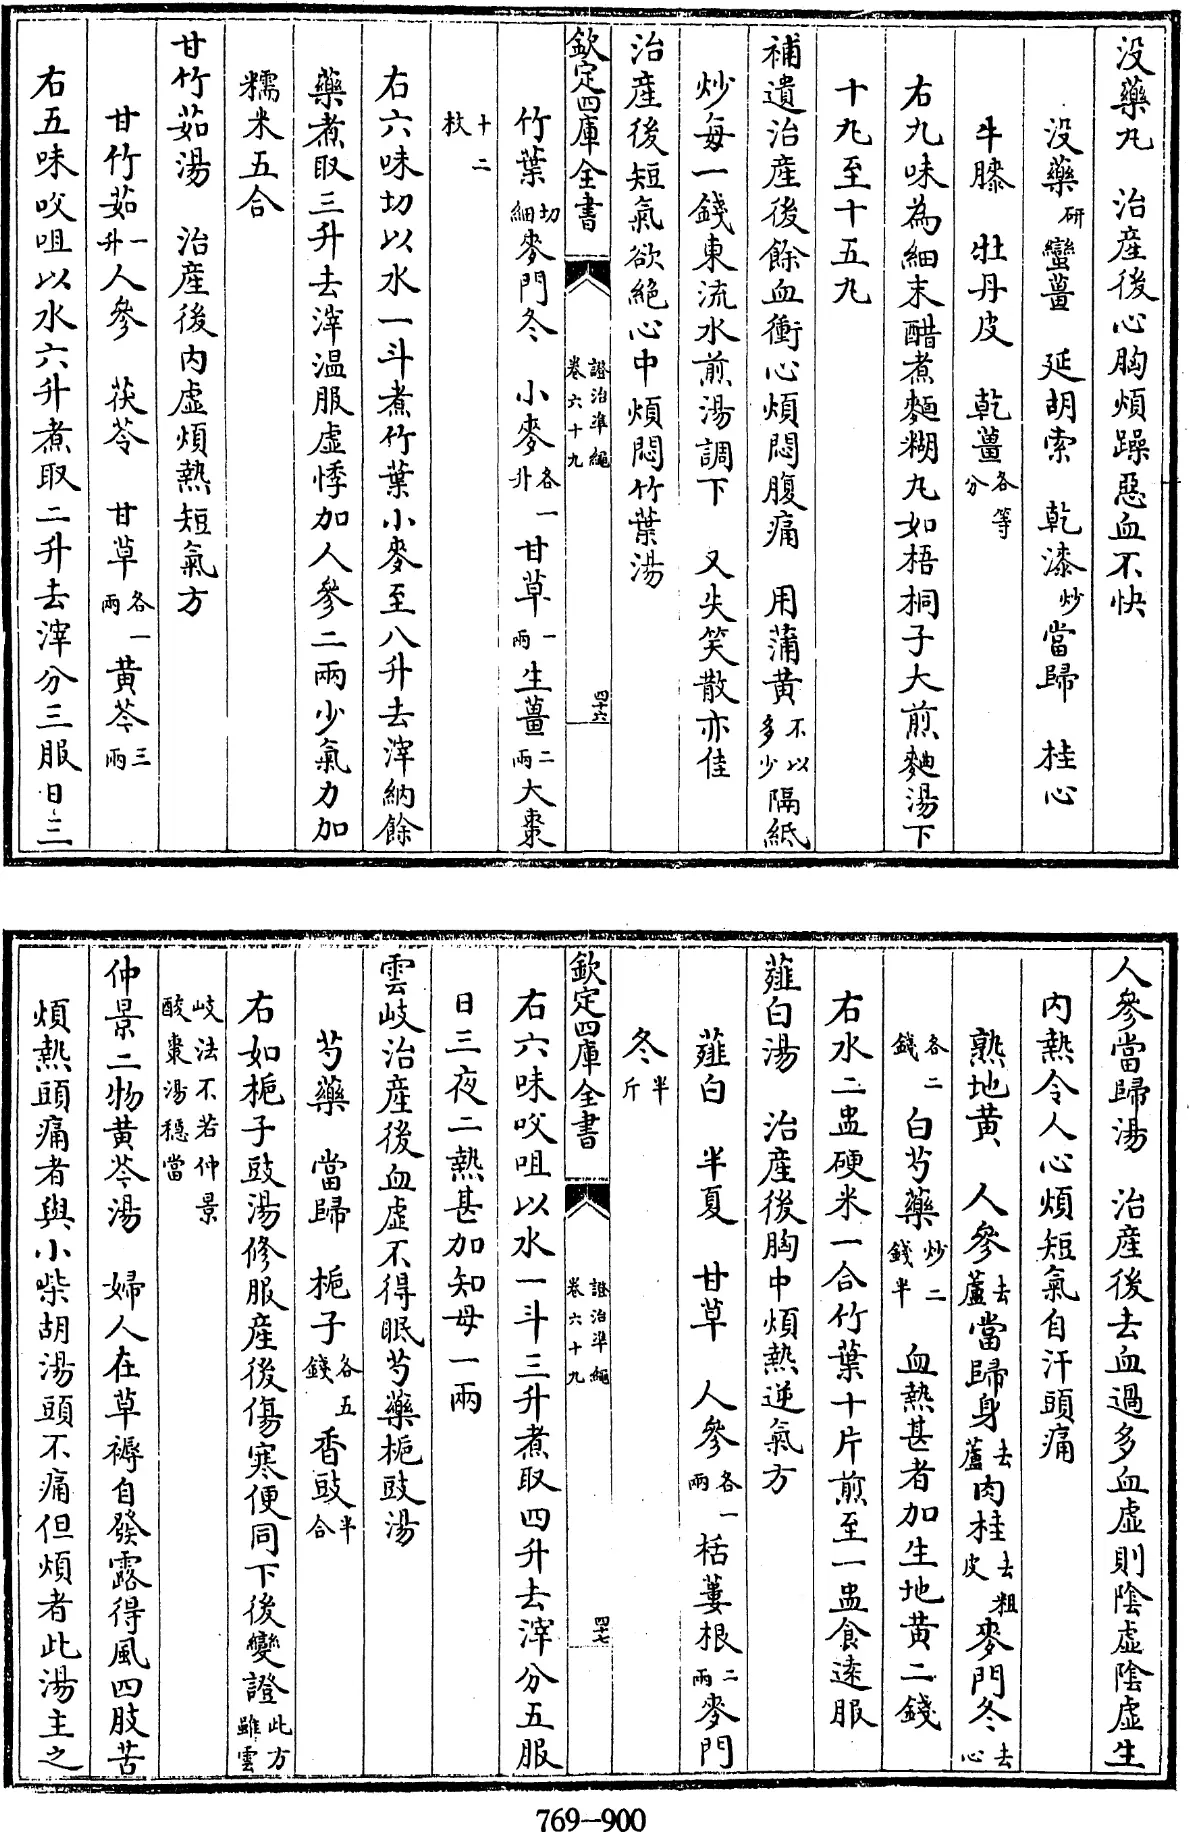 没藥丸　治産後心胸煩躁惡血不快
没藥研蠻薑　延胡索　乾漆炒當歸　桂心
牛膝　牡丹皮　乾薑各等分
右九味為細末醋煮麵糊丸如梧桐子大煎麯湯下
十丸至十五丸
補遺治産後餘血衝心煩悶腹痛　用蒲黄不以多少隔紙
炒每一錢東流水煎湯調下　又失笑散亦佳
治産後短氣欲絶心中煩悶竹葉湯
欽定四庫全書　證治準繩卷六十九　四十六
竹葉切細麥門冬　小麥各一升甘草一兩生薑二兩大棗
十二枚
右六味切以水一斗煮竹葉小麥至八升去滓納餘
藥煮取三升去滓温服虚悸加人參二兩少氣力加
糯米五合
甘竹茹湯　治産後内虚煩熱短氣方
甘竹茹一升人參　茯苓　甘草各一兩黄芩三兩
右五味㕮咀以水六升煮取二升去滓分三服日三
人參當歸湯　治産後去血過多血虚則陰虚陰虚生
内熱令人心煩短氣自汗頭痛
熟地黄　人參去蘆當歸身去蘆肉桂去粗皮麥門冬去心
各二錢白芍藥炒二錢半　血熱甚者加生地黄二錢
右水二盅硬米一合竹葉十片煎至一盅食遠服
薤白湯　治産後胸中煩熱逆氣方
薤白　半夏　甘草　人參各一兩栝蔞根二兩麥門
冬半斤
欽定四庫全書　證治準繩卷六十九　四十七
右六味㕮咀以水一斗三升煮取四升去滓分五服
日三夜二熱甚加知母一兩
雲岐治産後血虚不得眠芍藥梔豉湯
芍藥　當歸　梔子各五錢香豉半合
右如梔子豉湯修服産後傷寒便同下後變證此方雖雲
岐法不若仲景酸棗湯穩當
仲景二物黄芩湯　婦人在草褥自發露得風四肢苦
煩熱頭痛者與小柴胡湯頭不痛但煩者此湯主之
769-900